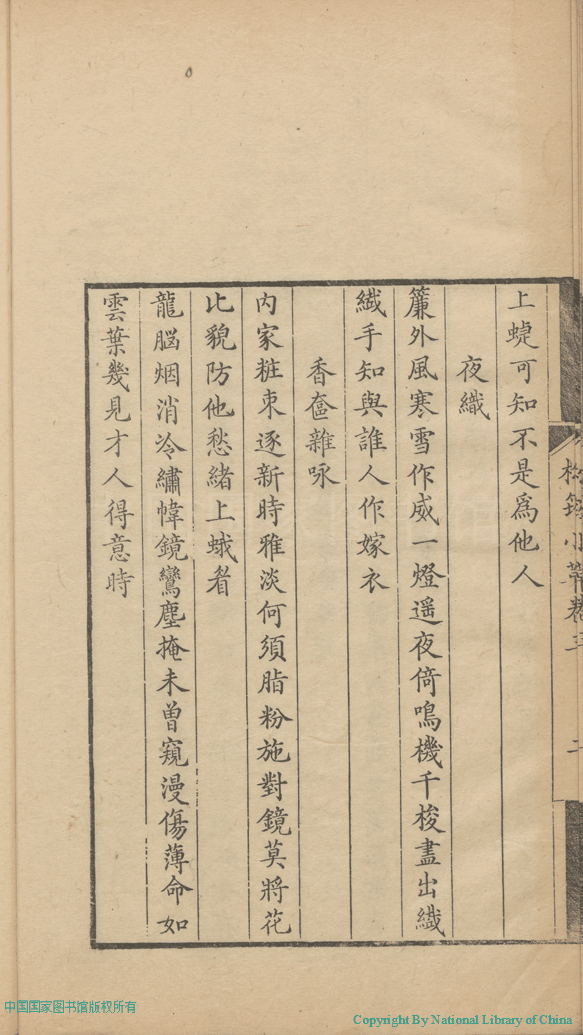 上蜨可知不是爲他人
夜織
簾外風寒雪作威一燈遥夜倚鳴機千梭盡出纎
纎手知與誰人作嫁衣
香奩雜咏
内家粧束逐新時雅淡何須脂粉施對鏡莫將花
比貌防他愁緒上蛾眉
龍脳烟消冷繡幃鏡鸞塵掩未曽窺漫傷薄命如
雲葉幾見才人得意時
小草卷三
二
中国国家图书馆版权所有
Copyright By National Library of China